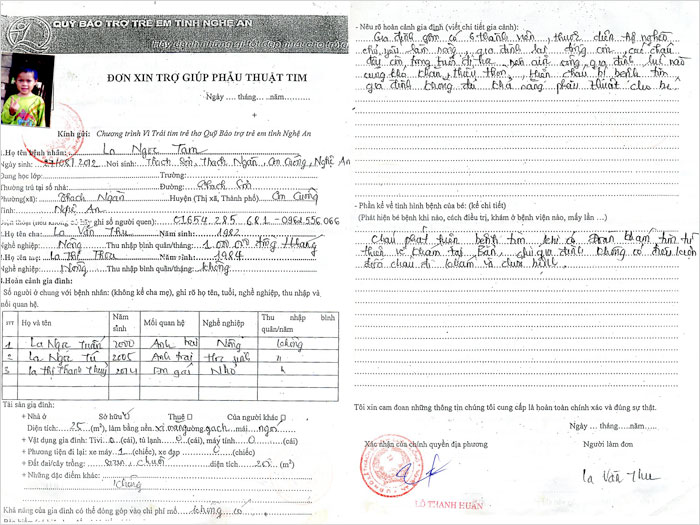 QUỸ BẢO TRỢ TRẺ EM TỈNH NGHỆ AN
ĐƠN XIN TRỢ GIÚP PHẪU THUẬT TIM
Ngày .... tháng... năm..........
Kính gửi: Chương trình Vì Trái tim trẻ thơ Quỹ Bảo trợ trẻ em tỉnh Nghệ An
1.Họ tên bệnh nhân: La Ngọc Tam
Ngày sinh: 27/08/2012 Nơi sinh: Thạch Sơn, Thạch Ngàn, Con Cuông, Nghệ An
Đang học lớp: Trường:
Thường trú tại số nhà: Đường: Thạch Sơn
Phường(xã): Thạch Ngàn Huyện (Thị xã, Thành phố) Con Cuông
Tỉnh: Nghệ An
ghi số người quen): 01654.285.681 - 0962.556.066
Họ tên cha: La Văn Thu Năm sinh: 1982
Nghề nghiệp: Nông Thu nhập bình quân/tháng: 1.000.000 đồng/tháng
Họ tên mẹ: La Thị Thoa Năm sinh: 1984
Nghề nghiệp: Nông Thu nhập bình quân/tháng: không
3.Hoàn cảnh gia đình:
Số người ở chung với bệnh nhân: (không kể cha mẹ), ghi rõ họ tên, tuổi, nghề nghiệp, thu nhập và
mối quan hệ.
STT Họ và tên Năm sinh Mối quan hệ Nghề nghiệp Thu nhập bình quân/năm
1 La Ngọc Tuấn 2000 Anh trai Nông không
2 La Ngọc Tú 2005 Anh trai Học sinh "
3 La Thị Thanh Thuỷ 2014 Em gái Nhỏ "
Tài sản gia đình:
+ Nhà ở Sở hữu Thuê Của người khác
Diện tích: 25 (m²), làm bằng nền xi măng tường gạch mái ngói
+ Vật dụng gia đình: Tivi 0 (cái), tủ lạnh 0 (cái), máy tính 0 (cái)
+ Phương tiện đi lại: xe máy 1 (chiếc), xe đạp 0 (chiếc)
+ Đất đai/cây trồng: diện tích 250 (m²)
+ Những đặc điểm khác:
không
Khả năng của gia đình có thể đóng góp vào chi phí mổ không có
- Nêu rõ hoàn cảnh gia đình (viết chi tiết gia cảnh):
Gia đình gồm có 6 thành viên, thuộc diện hộ nghèo
chủ yếu làm nông, gia đình lại đông con, các cháu
đang tuổi đi học, nên cuộc sống gia đình lúc nào
cũng khó khăn, thiếu thốn, hiện cháu bị bệnh tim,
gia đình không đủ khả năng phẫu thuật cho bé.
- Phần kể về tình hình bệnh của bé: (kể chi tiết)
(Phát hiện bé bệnh khi nào, cách điều trị, khám ở bệnh viện nào, mấy lần ...)
Cháu phát hiện bệnh tim khi có Đoàn khám tim từ
thiện về khám tại bản, gia đình không có điều kiện
đưa cháu đi khám và
Tôi xin cam đoan những thông tin chúng tôi cung cấp là hoàn toàn chính xác và đúng sự thật.
Ngày .... tháng.....năm......
Xác nhận của chính quyền địa phương Người làm đơn
LÔ THANH HUẤN La Văn Thu